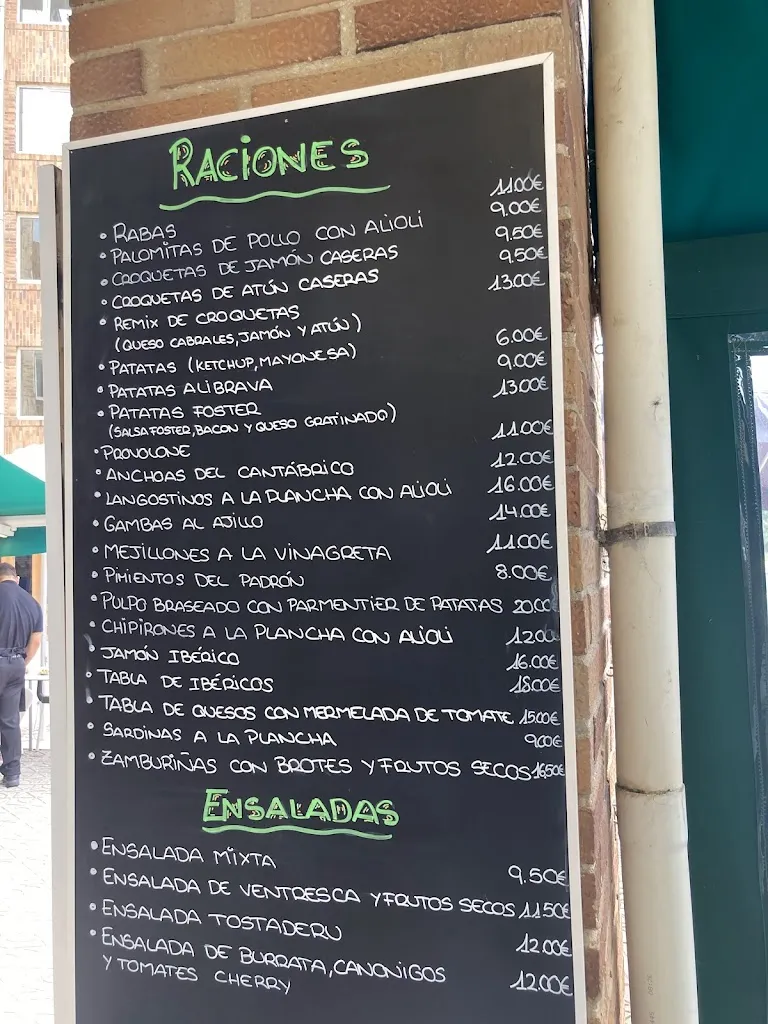 RACIONES
• RABAS 11.00€
• PALOMITAS DE POLLO CON ALIOLI 9.00€
• CROQUETAS DE JAMÓN CASERAS 9.50€
• CROQUETAS DE ATÚN CASERAS 9.50€
• REMIX DE CROQUETAS 13.00€
(QUESO CABRALES, JAMÓN Y ATÚN)
• PATATAS (KETCHUP, MAYONESA) 6.00€
• PATATAS ALIBRAVA 9.00€
• PATATAS FOSTER 13.00€
(SALSA FOSTER, BACON Y QUESO GRATINADO)
• PROVOLONE 11.00€
• ANCHOAS DEL CANTÁBRICO 12.00€
• LANGOSTINOS A LA PLANCHA CON ALIOLI 16.00€
• GAMBAS AL AJILLO 14.00€
• MEJILLONES A LA VINAGRETA 11.00€
• PIMIENTOS DEL PADRÓN 8.00€
• PULPO BRASEADO CON PARMENTIER DE PATATAS 20.00
• CHIPIRONES A LA PLANCHA CON ALIOLI 12.00
• JAMÓN IBÉRICO 16.00€
• TABLA DE IBÉRICOS 18.00€
• TABLA DE QUESOS CON MERMELADA DE TOMATE 15.00€
• SARDINAS A LA PLANCHA 9.00€
• ZAMBURIÑAS CON BROTES Y FRUTOS SECOS 16.50€
ENSALADAS
• ENSALADA MIXTA 9.50€
• ENSALADA DE VENTRESCA Y FRUTOS SECOS 11.50€
• ENSALADA TOSTADERU 12.00€
• ENSALADA DE BURRATA, CANONIGOS
Y TOMATES CHERRY 12.00€